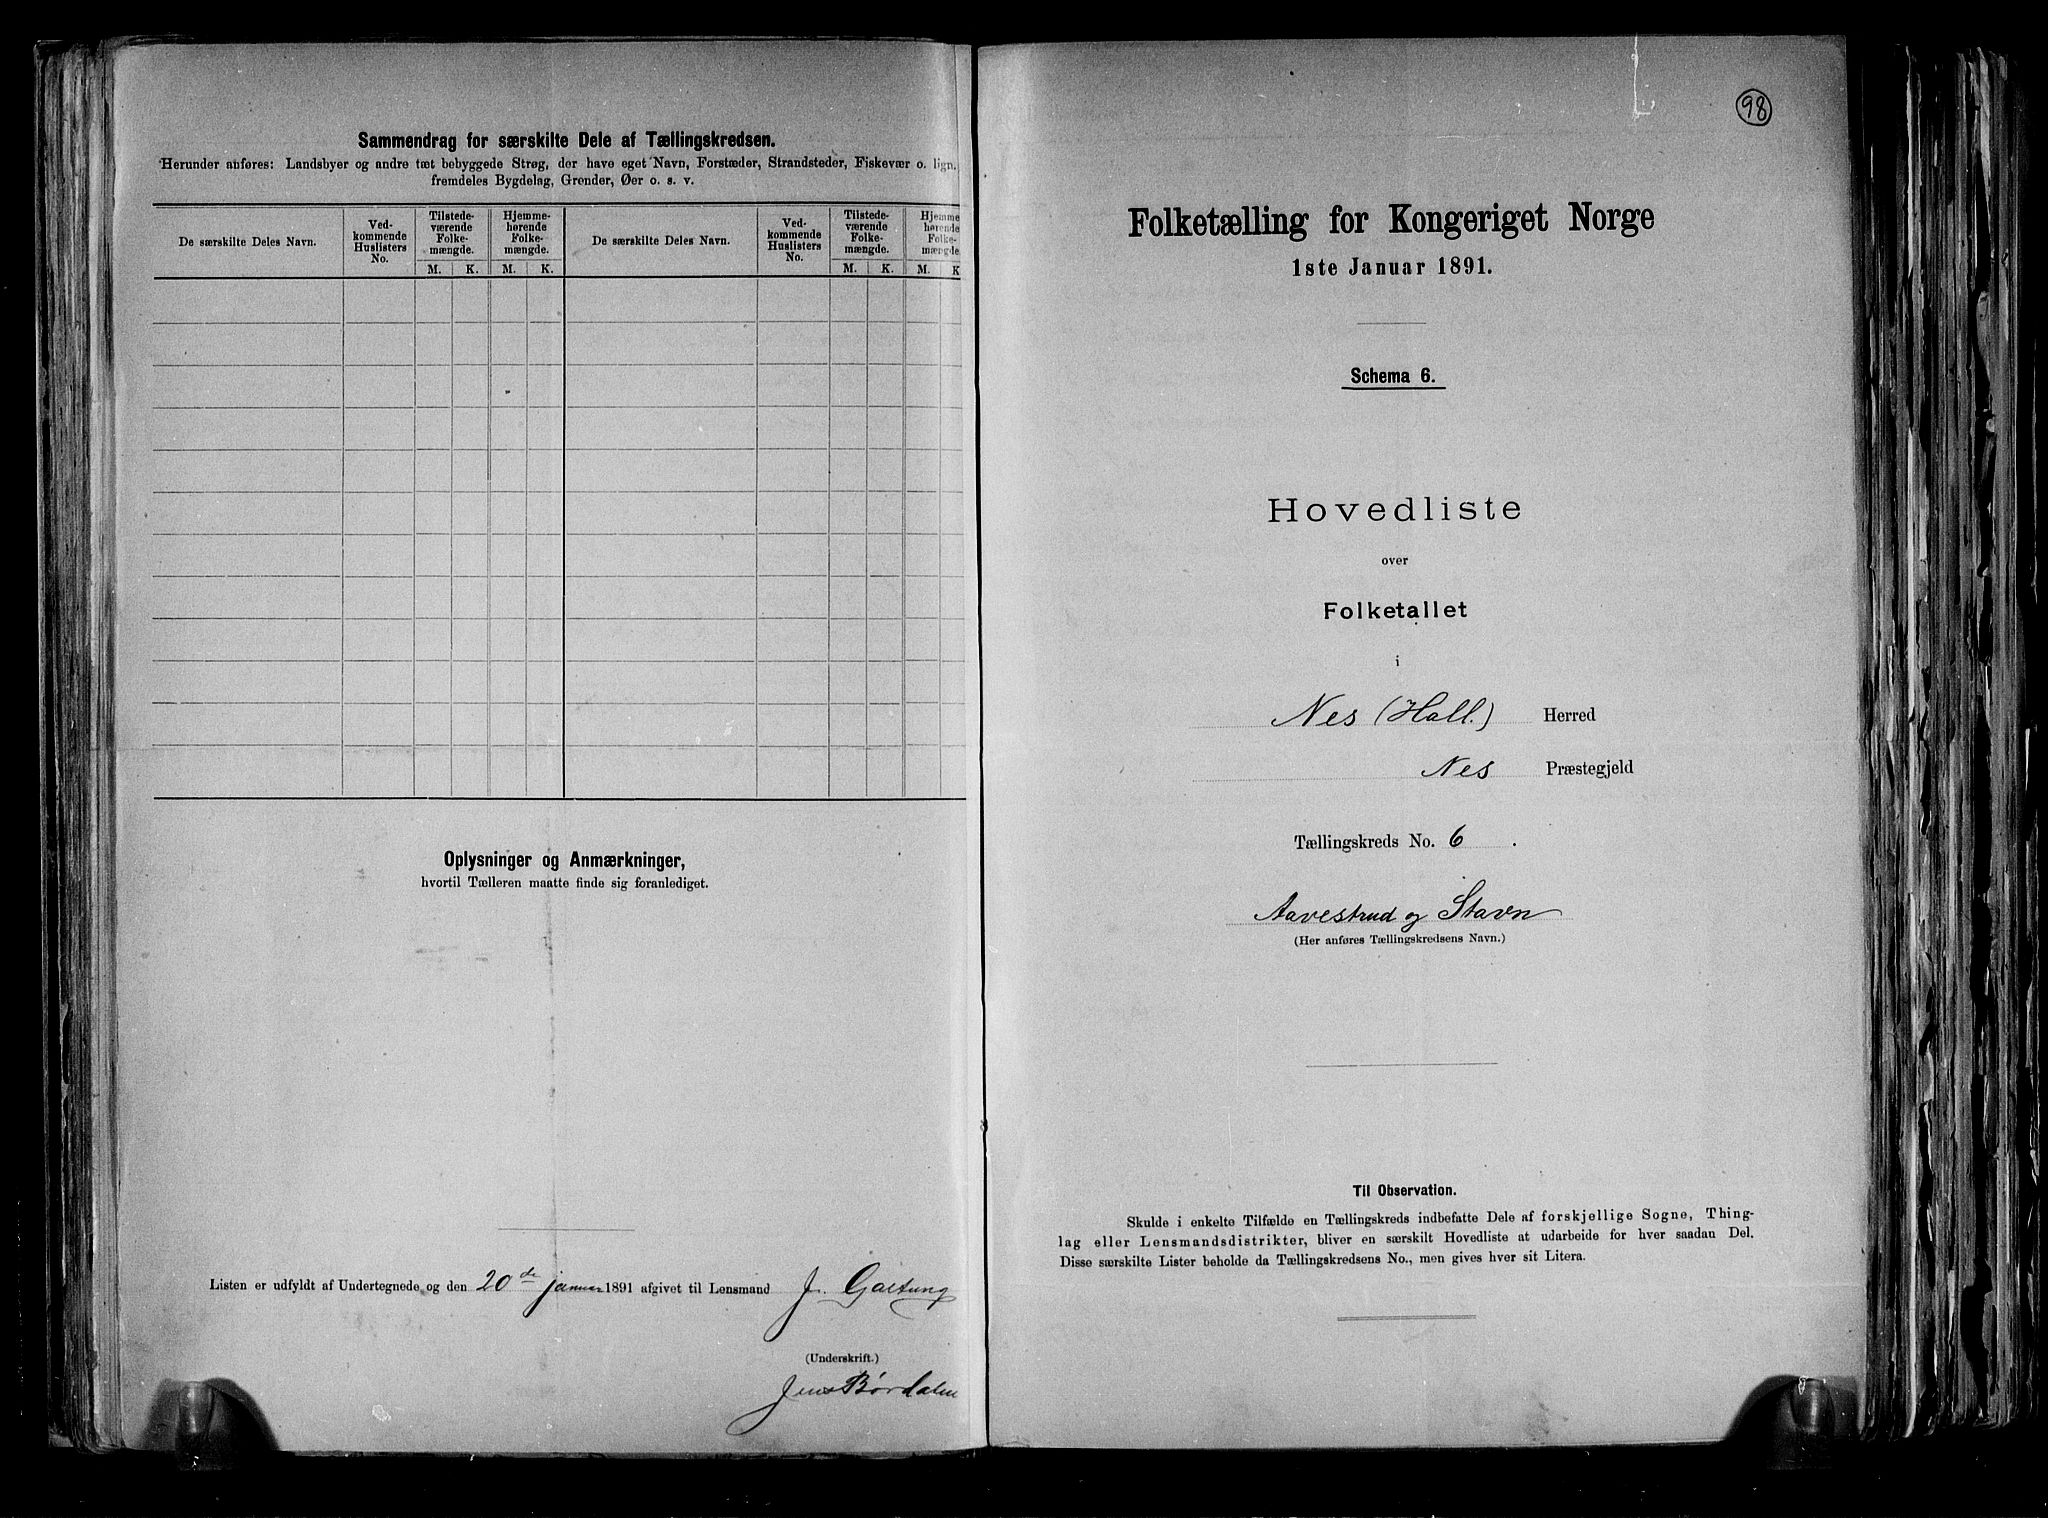 Sammendrag for særskilte Dele af Tællingskredsen.
Herunder anføres: Landsbyer og andre tæt bebyggede Strøg, der have eget Navn, Forstæder, Strandsteder, Fiskevær o. lign.
fremdeles Bygdelag, Grender, Øer o. s. v.
De særskilte Deles Navn.
Ved-
kommende
Huslisters
No.
Tilstede-
værende
Folke-
mængde.
M. K.
Hjemme-
hørende
Folke-
mængde.
M. K.
De særskilte Deles Navn.
Ved-
kommende
Huslisters
No.
Tilstede-
værende
Folke-
mængde.
M. K.
Hjemme
hørende
Folke-
mængde.
M. K
Oplysninger og Anmærkninger,
hvortil Tælleren maatte finde sig foranlediget.
Listen er udfyldt af Undertegnede og den 20de januar 1891 afgivet til Lensmand J. Galtung
(Underskrift.)
Jens Børdalen
98
Folketælling for Kongeriget Norge
1ste Januar 1891.
Schema 6.
Hovedliste
over
Folketallet
i
Nes (Hall.) Herred
Nes Præstegjeld
Tællingskreds No. 6.
Aavestrud og Stavn
(Her anføres Tællingskredsens Navn.)
Til Observation.
Skulde i enkelte Tilfælde en Tællingskreds indbefatte Dele af forskjellige Sogne, Thing-
lag eller Lensmandsdistrikter, bliver en særskilt Hovedliste at udarbeide for hver saadan Del.
Disse særskilte Lister beholde da Tællingskredsens No., men gives hver sit Litera.